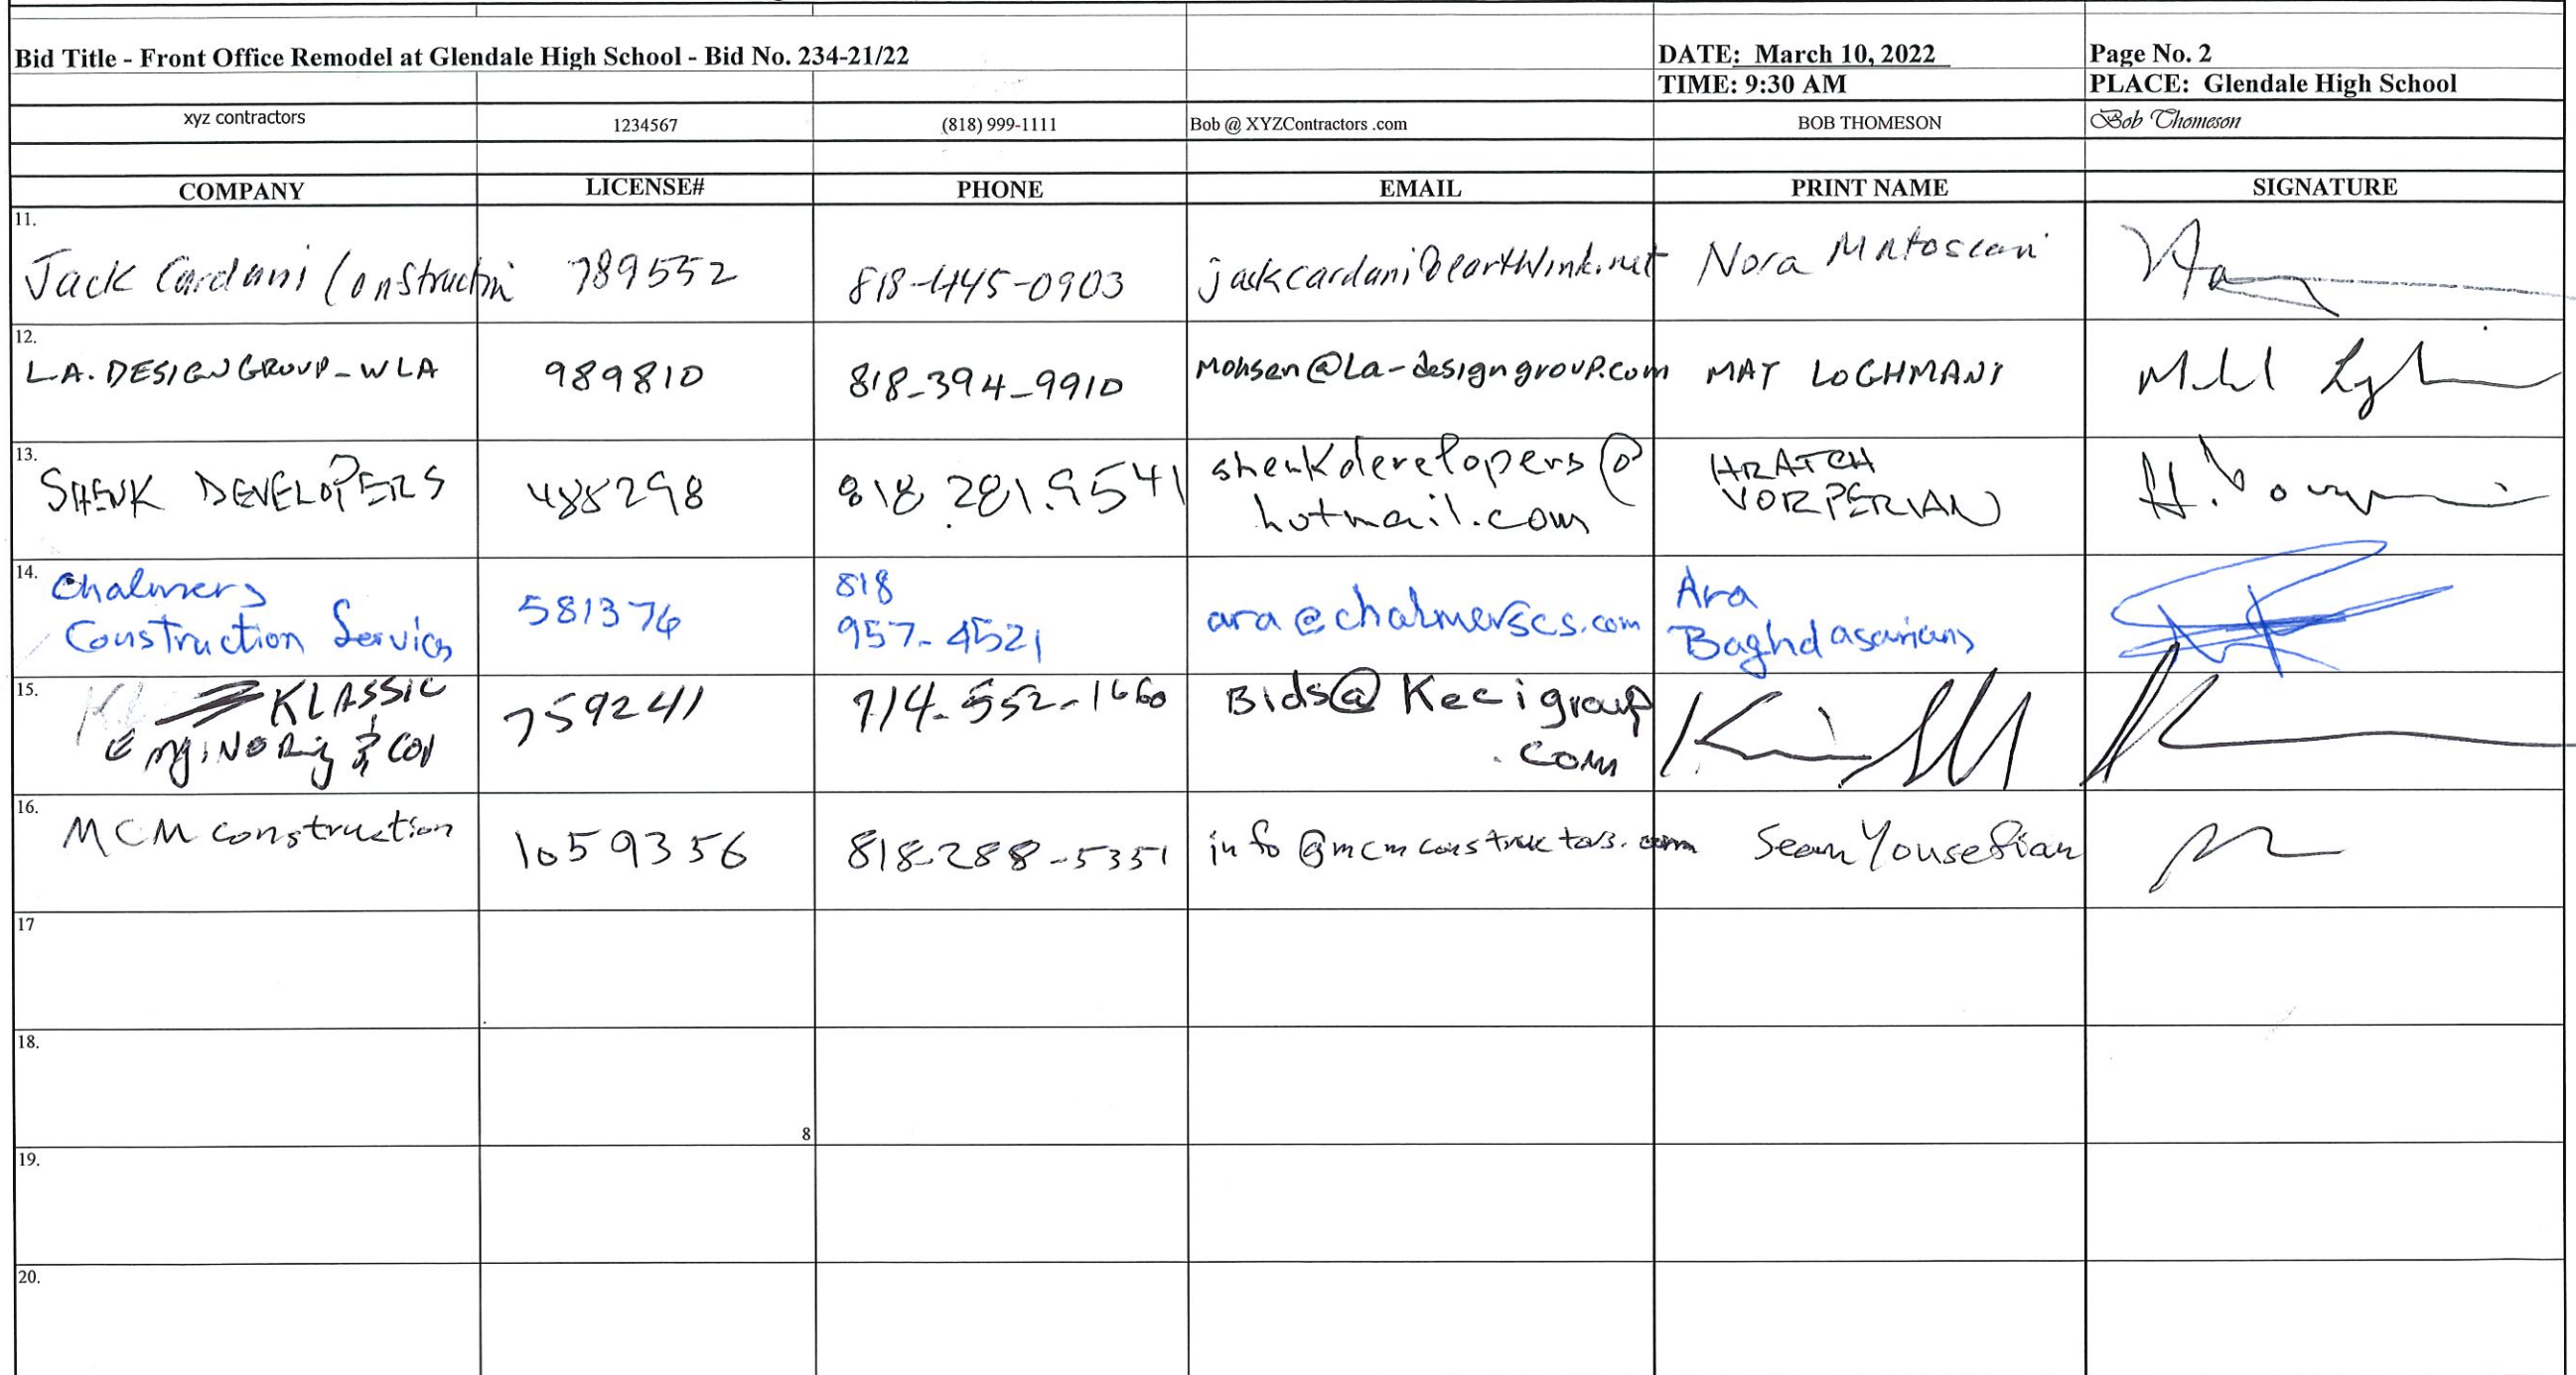 Bid Title - Front Office Remodel at Glendale High School - Bid No. 234-21/22 DATE: March 10, 2022 Page No. 2
TIME: 9:30 AM PLACE: Glendale High School
xyz contractors 1234567 (818) 999-1111 Bob @ XYZContractors .com BOB THOMESON Bob Thomeson
COMPANY LICENSE# PHONE EMAIL PRINT NAME SIGNATURE
11.
Jack Cardani Constructin 789552 818-445-0903 jackcardani@earthlink.net Nora Matoscani
12.
L.A. DESIGN GROUP-WLA 989810 818-394-9910 Mohsen@La-designgroup.com MAT LOGHMANI
13.
SHENK DEVELOPERS 488298 818.281.9541 shenkdevelopers@
hotmail.com
HRATCH
VORPERIAN
14.
Chalmers
Construction Services
581376
818
957-4521
ara@chalmerscs.com
Ara
Baghdasarians
15.
KLASSIC
EngiNeRing & Con
759241 714-552-1660 Bids@Kecigroup
.com
16.
MCM construction 1059356 818-288-5351 info@mcmconstructors.com Sean Yousefian
17
18.
8
19.
20.